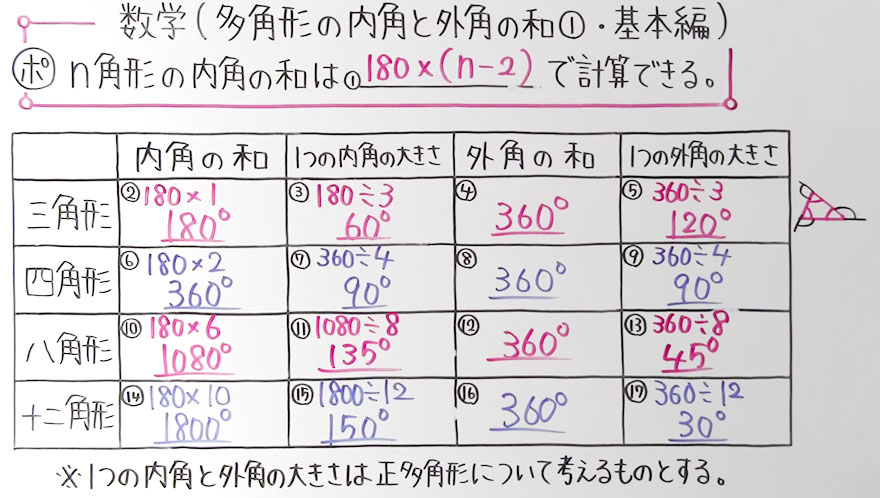 数学(多角形の内角と外角の和①・基本編)
ポ n角形の内角の和は①180×(n-2)で計算できる。
内角の和 1つの内角の大きさ 外角の和 1つの外角の大きさ
三角形 ②180×1 180° ③180÷3 60° ④360° ⑤360÷3 120°
四角形 ⑥180×2 360° ⑦360÷4 90° ⑧360° ⑨360÷4 90°
八角形 ⑩180×6 1080° ⑪1080÷8 135° ⑫360° ⑬360÷8 45°
十二角形 ⑭180×10 1800° ⑮1800÷12 150° ⑯360° ⑰360÷12 30°
※1つの内角と外角の大きさは正多角形について考えるものとする。